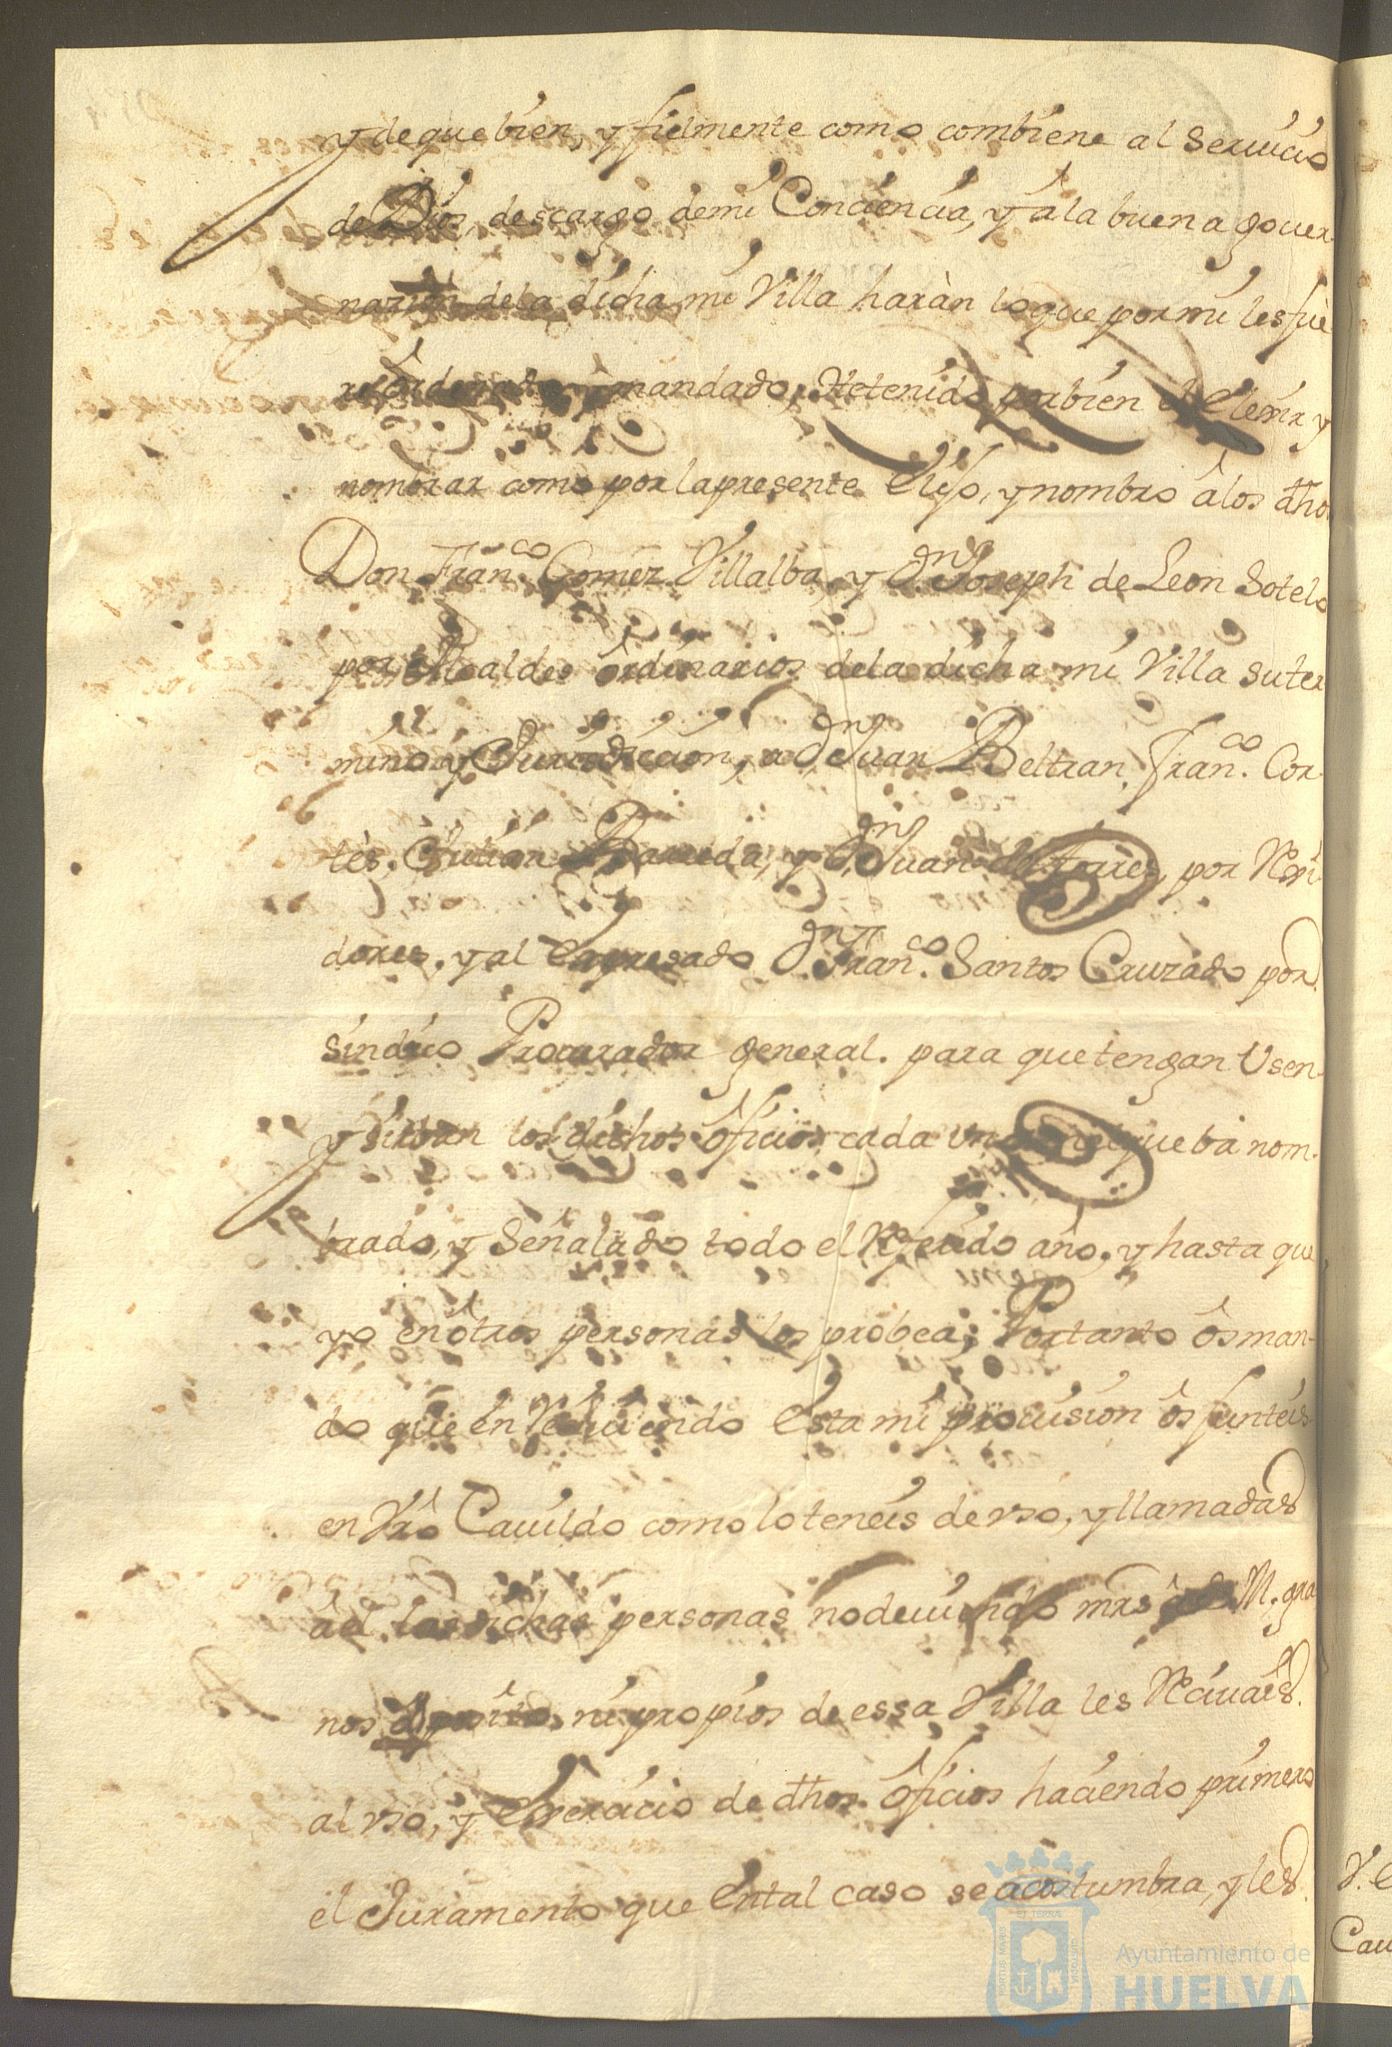 y de que bien, y fielmente como combiene al Seruicio
de Dios, descargo de mi Conciencia, y â la buena gouer-
nazion de la dicha mi Villa haràn lo que por mi les fue-
re ordenado y mandado, He tenido por bien de Elexir y
nombrar como por la presente Elijo, y nombro â los dhos
Don Fran.co Gomez Villalba, y Dn Joseph de Leon Sotelo
por Alcaldes ôrdinarios de la dicha mi Villa su ter
mino y Jurisdicion, a Dn Juan Beltran, Fran.co Cor-
tès, Julian Rameda, y Dn Juan de Torres, por Regi-
dores, y al Expresado Dn Fran.co Santos Cruzado por
sindico Procurador general. para que tengan Usen
y sirban los dichos ôficios cada uno en el que bà nom-
brado, y Señalado todo el Referido año, y hasta que
yo en ôtros personas los probea; Por tanto ôs man-
do que en Reciuiendo Esta mi prouision ôs junteis
en Vrô Cauildo como lo teneis de vso, y llamadas
â el las dichas personas no deuiendo mrs â S. M. gra
nos â positos, ni propios de essa Villa les Reciuais
al vso, y Exercicio de dhos ôficios haciendo primero
el Juramento que En tal caso se acostumbra, y les
V. E
Cau
Ayuntamiento de
HUELVA